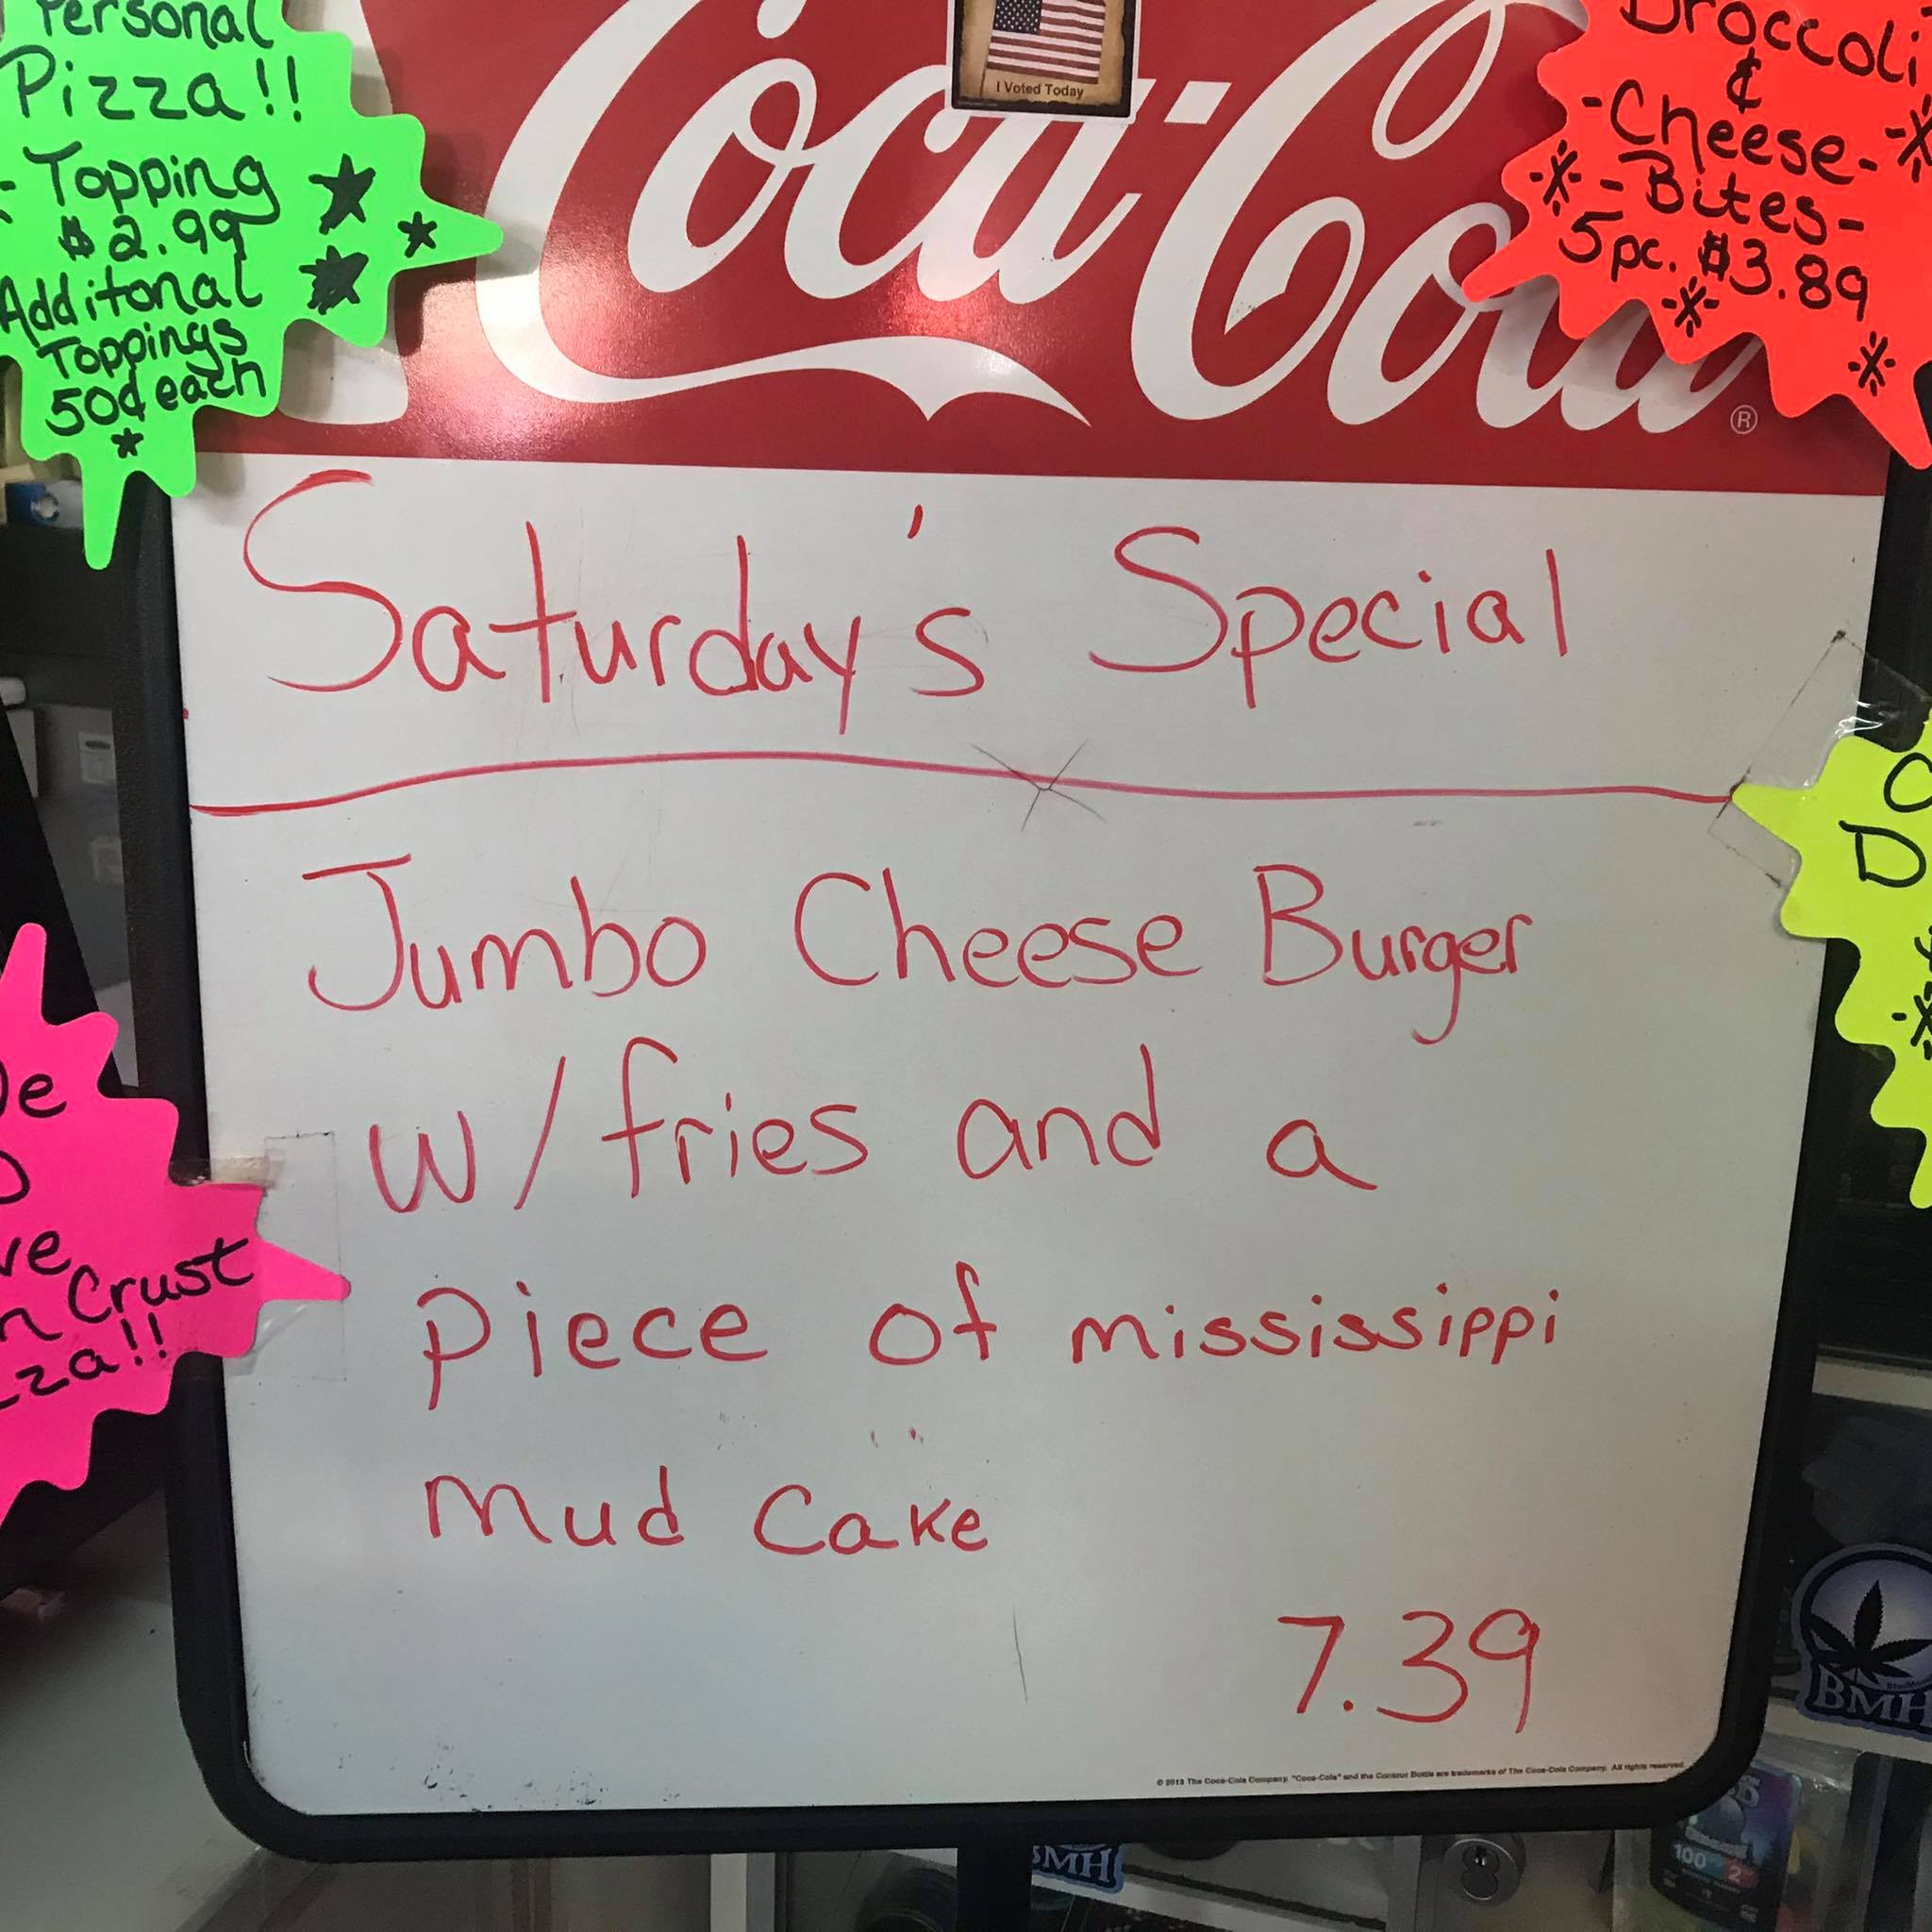 Personal
Pizza!!
Topping
$2.99
Additonal
Toppings
50¢ each
Coca-Cola
®
I Voted Today
Broccoli
&
-Cheese-
-Bites-
5pc. $3.89
Saturday's Special
Jumbo Cheese Burger
w/fries and a
piece of mississippi
mud cake
7.39
© 2013 The Coca-Cola Company. "Coca-Cola" and the Contour Bottle are trademarks of The Coca-Cola Company. All rights reserved.
Crust
BMH
BMH
100